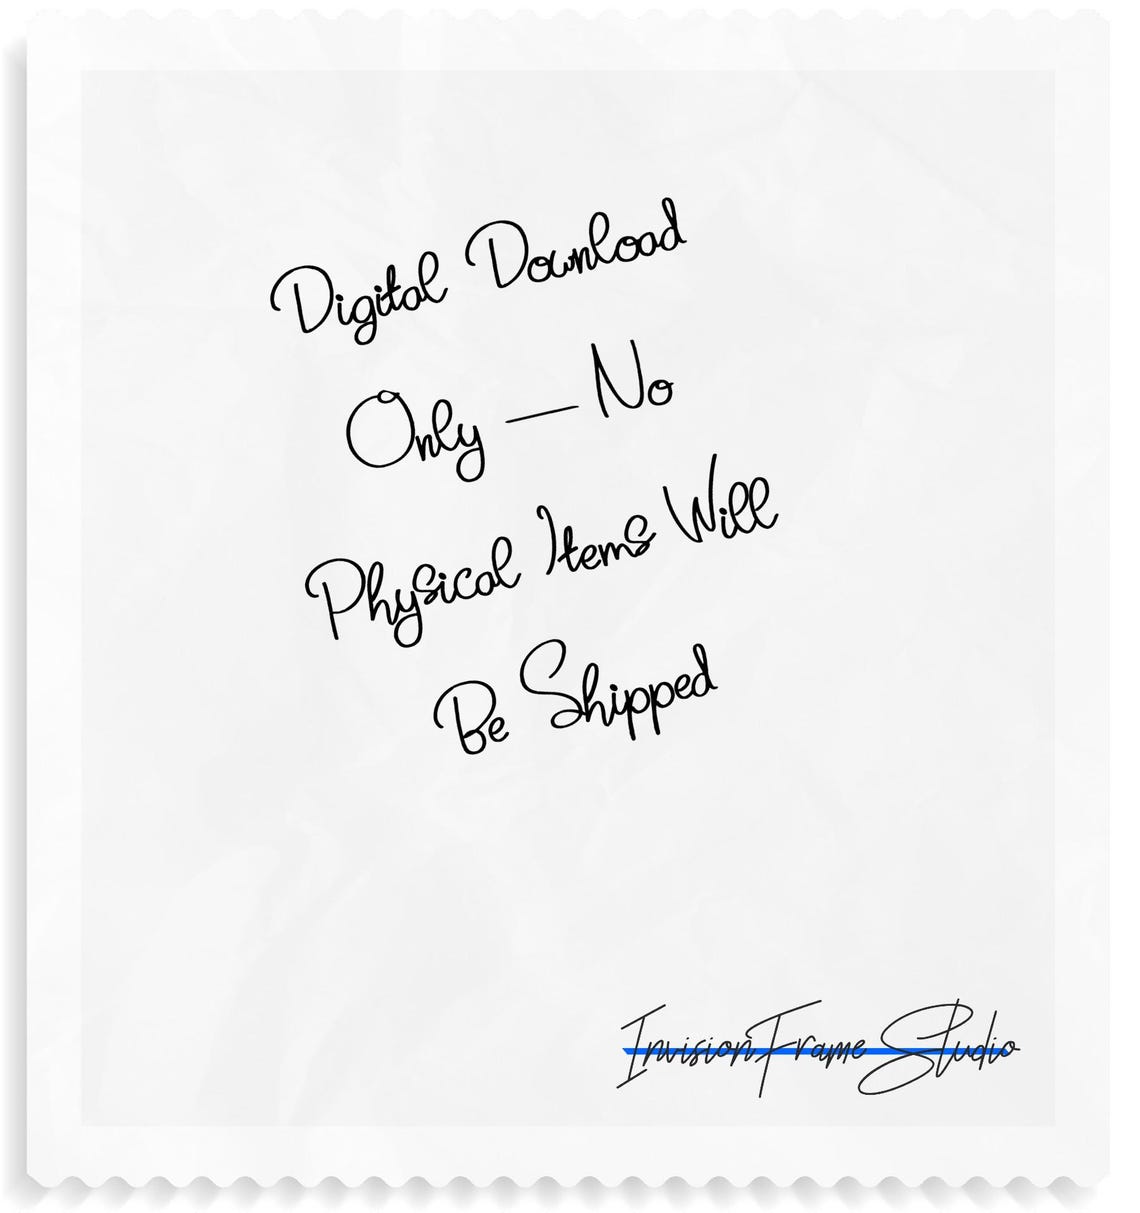 Digital Download
Only — No
Physical Items Will
Be Shipped
InvisionFrame Studio